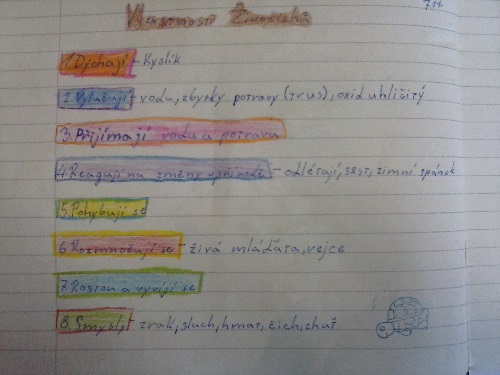 Vlastnosti Živočichů
1. Dýchají - Kyslík
2. Vylučují - vodu, zbytky potravy (trus), oxid uhličitý
3. Přijímají vodu a potravu
4. Reagují na změny v přírodě - odlétají, srst, zimní spánek
5. Pohybují se
6. Rozmnožují se - živá mláďata, vejce
7. Rostou a vyvíjí se
8. Smysly - zrak, sluch, hmat, čich, chuť